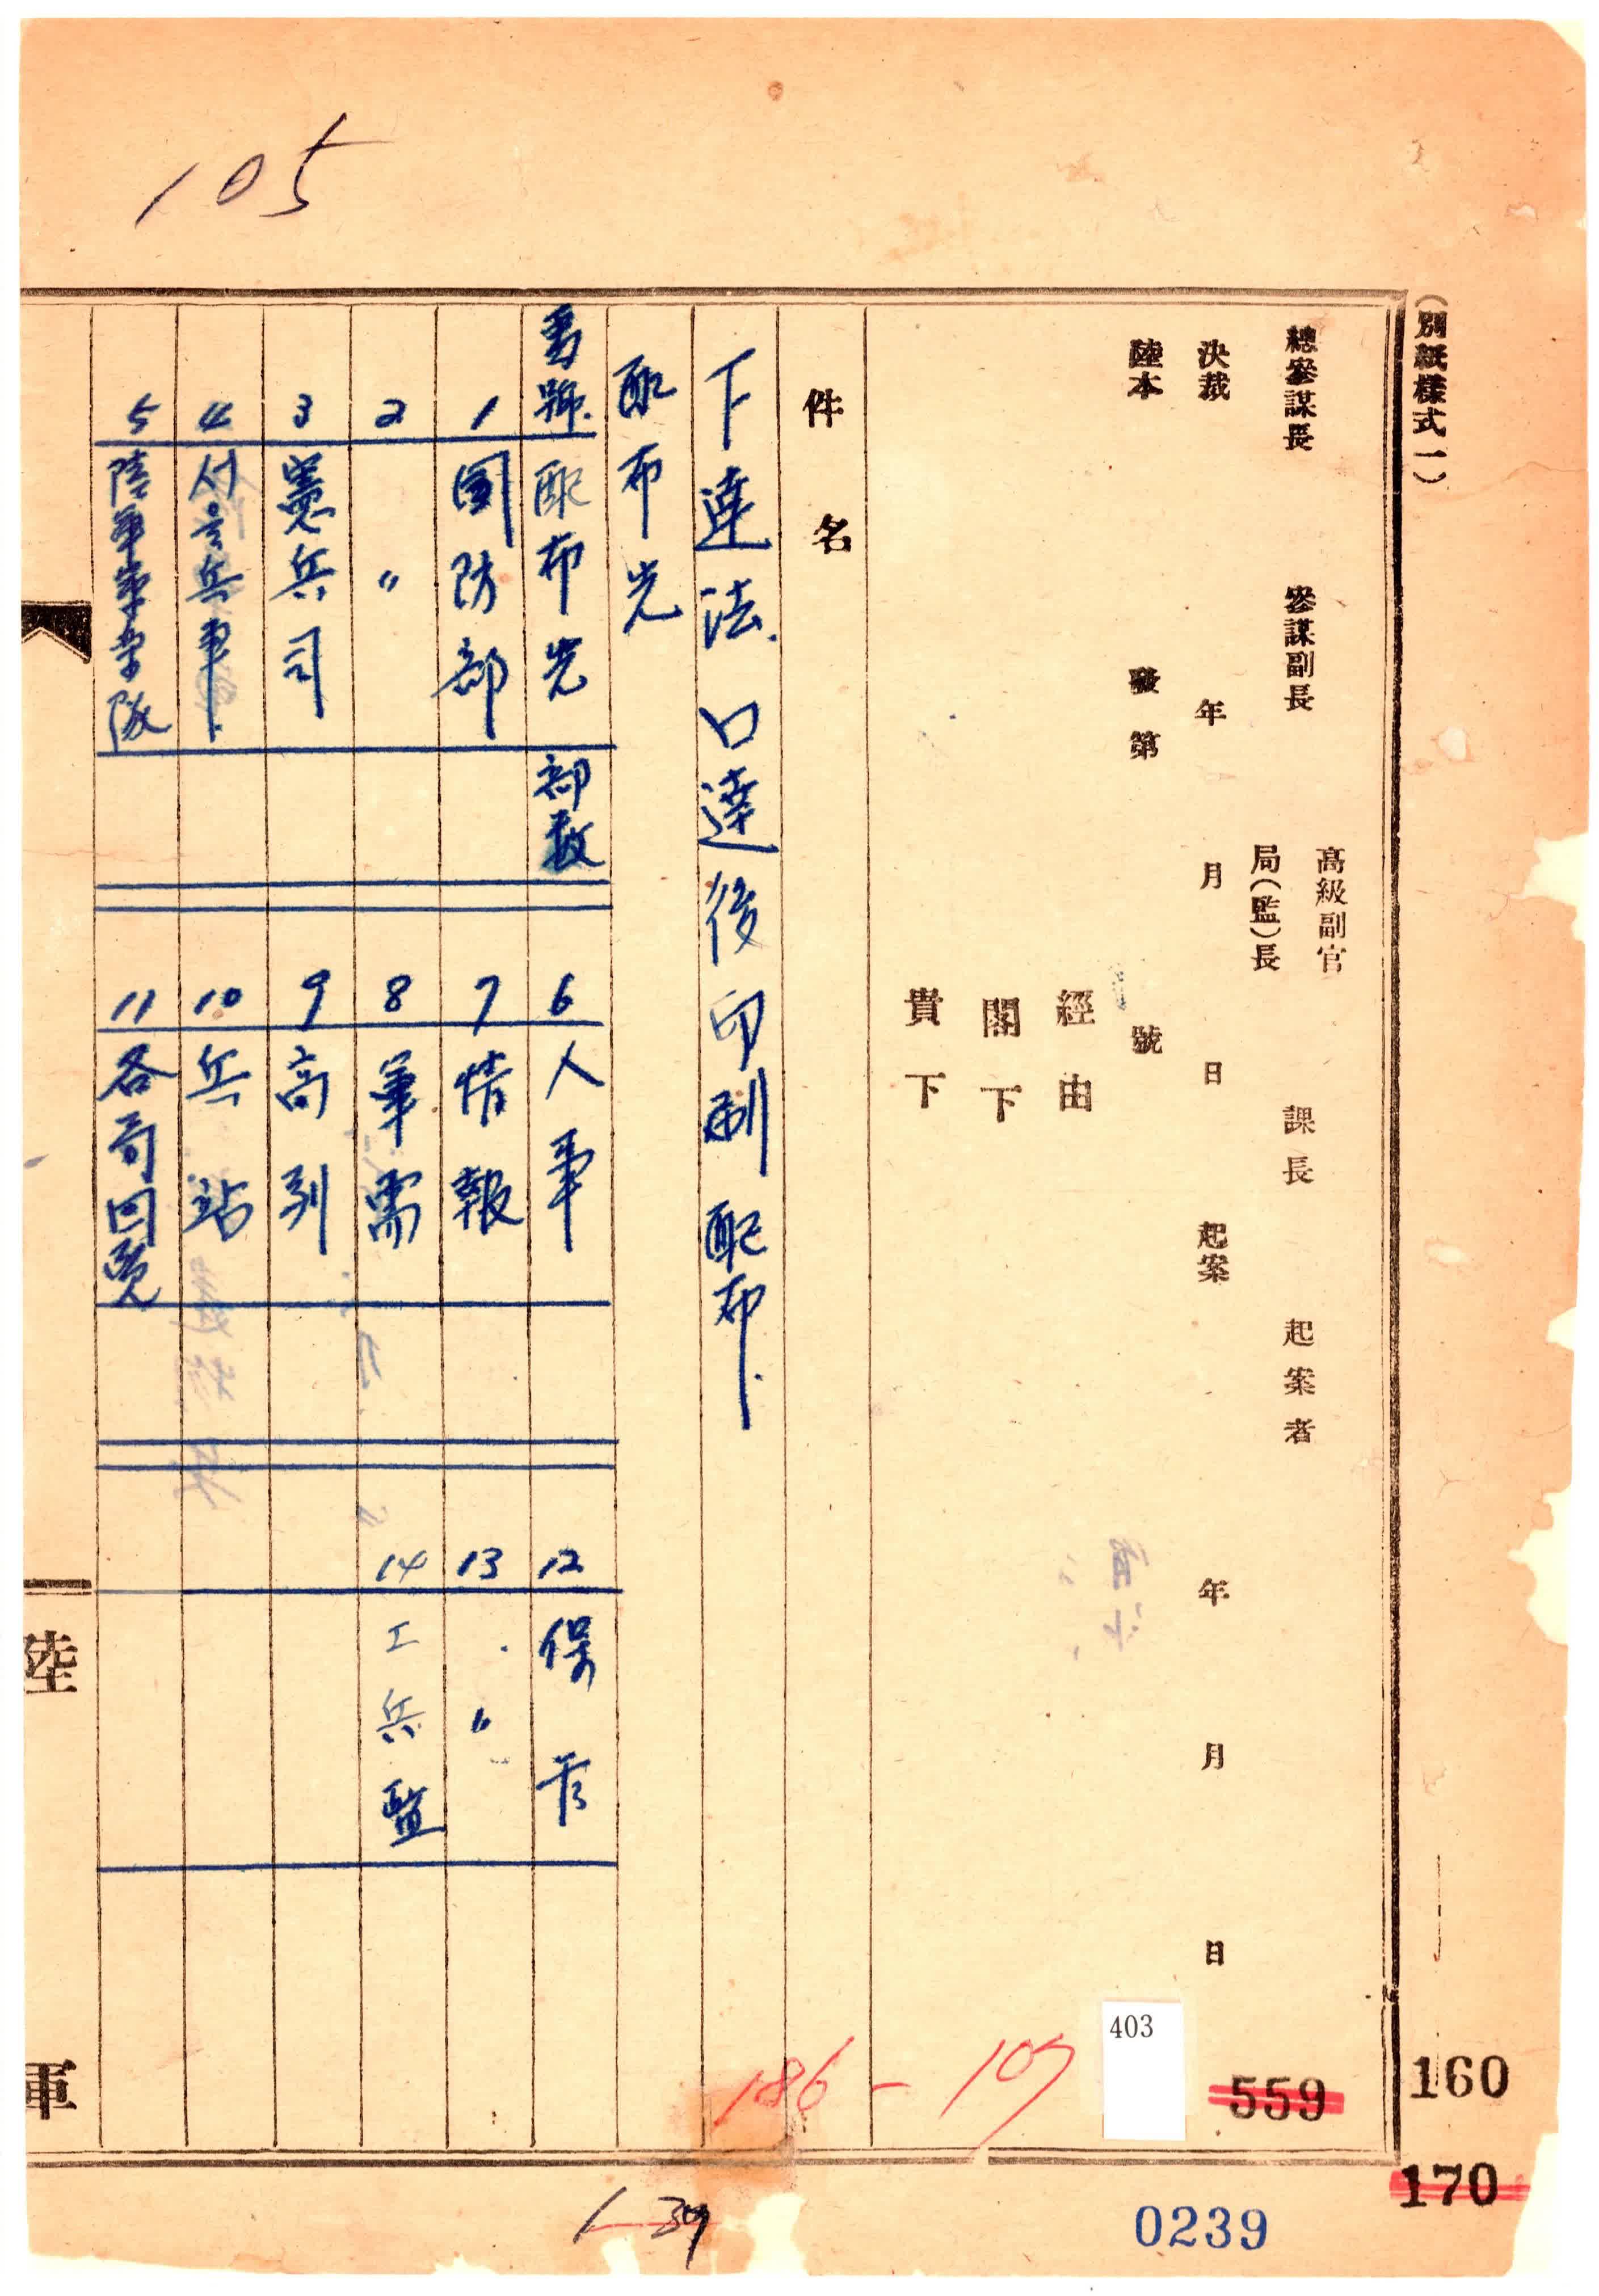 105
(別紙樣式一)
總參謀長 參謀副長 高級副官 局(監)長 課長 起案者
決裁 年 月 日 起案 年 月 日
陸本 發第 號
經由
閣下
貴下
件名
下達法. 口達後印刷配布.
配布先
番號. 配布先 部數
1 國防部
2 〃
3 憲兵司
4 서울兵事.
5 陸軍軍樂隊
6 人事
7 情報
8 軍需
9 高到
10 兵站
11 各局回覽
12 保
13 〃
14 工兵監
陸
軍
186-107
403
559
160
170
0239